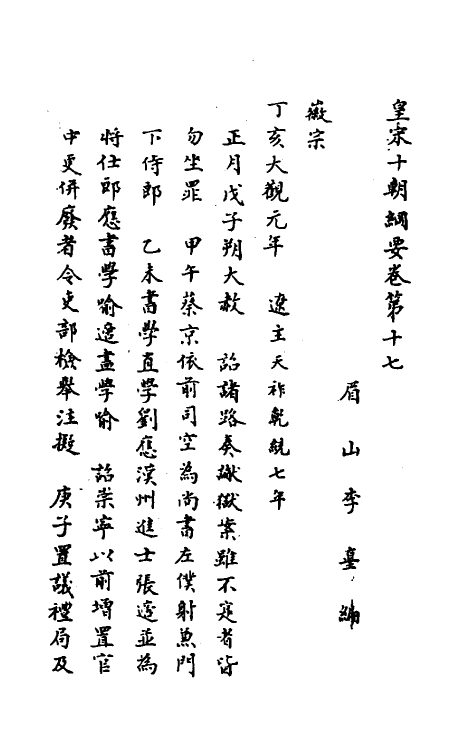 皇宋十朝綱要卷第十七
眉山李𡌴編
徽宗
丁亥大觀元年　遼主天祚乾統七年
正月戊子朔大赦　詔諸路奏讞獄案雖不寔者皆
勿坐罪　甲午蔡京依前司空為尚書左僕射兼門
下侍郎　乙未書學直學劉應漢州進士張邃並為
將仕郎應書學喻邃畫學喻　詔崇寧以前增置官
中更併廢者令吏部檢舉注擬　庚子置議禮局及